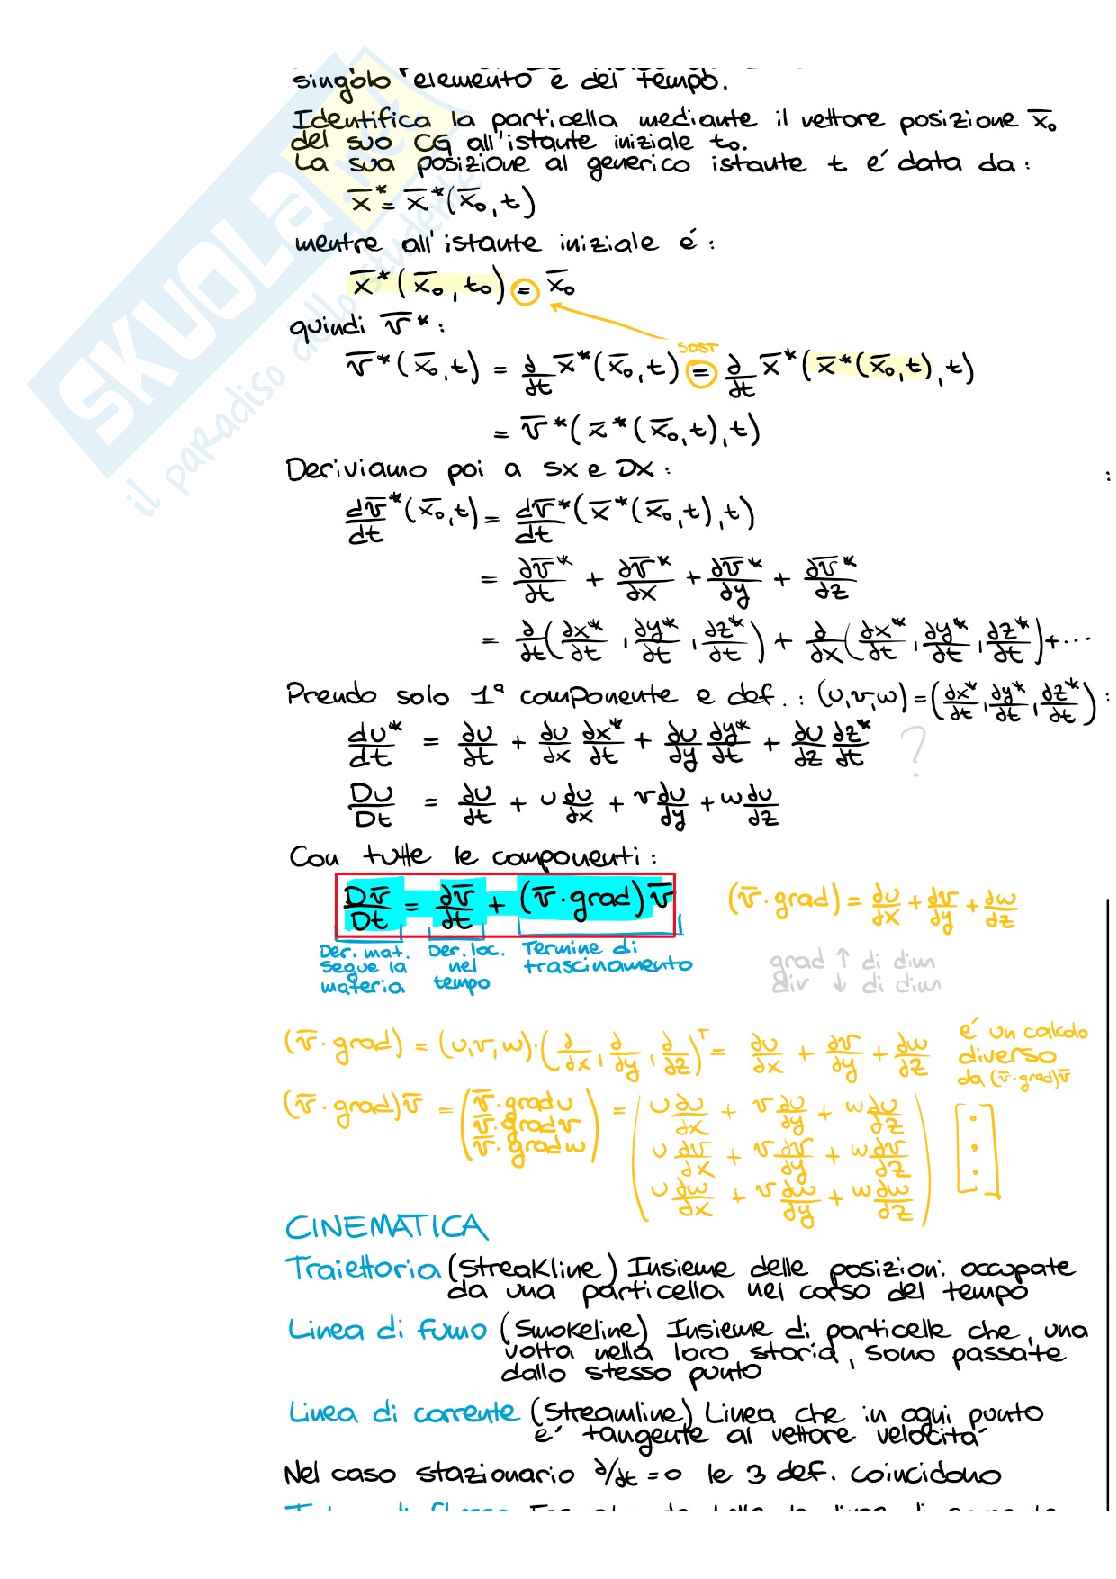 singolo elemento e del tempo.
Identifica la particella mediante il vettore posizione x̅₀
del suo CG all'istante iniziale t₀.
La sua posizione al generico istante t é data da:
x̅* = x̅*(x̅₀, t)
mentre all'istante iniziale é:
x̅*(x̅₀, t₀) = x̅₀
quindi v̅*:
SOST
v̅*(x̅₀, t) = ∂/∂t x̅*(x̅₀, t) = ∂/∂t x̅*(x̅*(x̅₀, t), t)
= v̅*(x̅*(x̅₀, t), t)
Deriviamo poi a SX e DX:
dv̅*/dt (x̅₀, t) = dv̅*/dt (x̅*(x̅₀, t), t)
= ∂v̅*/∂t + ∂v̅*/∂x + ∂v̅*/∂y + ∂v̅*/∂z
= ∂/∂t (∂x*/∂t, ∂y*/∂t, ∂z*/∂t) + ∂/∂x (∂x*/∂t, ∂y*/∂t, ∂z*/∂t) + ...
Prendo solo 1ª componente e def.: (u, v, w) = (∂x*/∂t, ∂y*/∂t, ∂z*/∂t):
du*/dt = ∂u/∂t + ∂u/∂x ∂x*/∂t + ∂u/∂y ∂y*/∂t + ∂u/∂z ∂z*/∂t ?
Du/Dt = ∂u/∂t + u ∂u/∂x + v ∂u/∂y + w ∂u/∂z
Con tutte le componenti:
Dv̅/Dt = ∂v̅/∂t + (v̅ · grad) v̅
(v̅ · grad) = ∂u/∂x + ∂v/∂y + ∂w/∂z
Der. mat. segue la materia
Der. loc. nel tempo
Termine di trascinamento
grad ↑ di dim
div ↓ di dim
(v̅ · grad) = (u, v, w) · (∂/∂x, ∂/∂y, ∂/∂z)ᵀ = ∂u/∂x + ∂v/∂y + ∂w/∂z
é un calcolo
diverso
da (v̅ · grad) v̅
(v̅ · grad) v̅ = (v̅ · grad u
v̅ · grad v
v̅ · grad w) = (u ∂u/∂x + v ∂u/∂y + w ∂u/∂z
u ∂v/∂x + v ∂v/∂y + w ∂v/∂z
u ∂w/∂x + v ∂w/∂y + w ∂w/∂z)
CINEMATICA
Traiettoria (Streakline) Insieme delle posizioni occupate
da una particella nel corso del tempo
Linea di fumo (Smokeline) Insieme di particelle che, una
volta nella loro storia, sono passate
dallo stesso punto
Linea di corrente (Streamline) Linea che in ogni punto
é tangente al vettore velocità
Nel caso stazionario ∂/∂t = 0 le 3 def. coincidono
SKUOLA.net
il paradiso dello studente